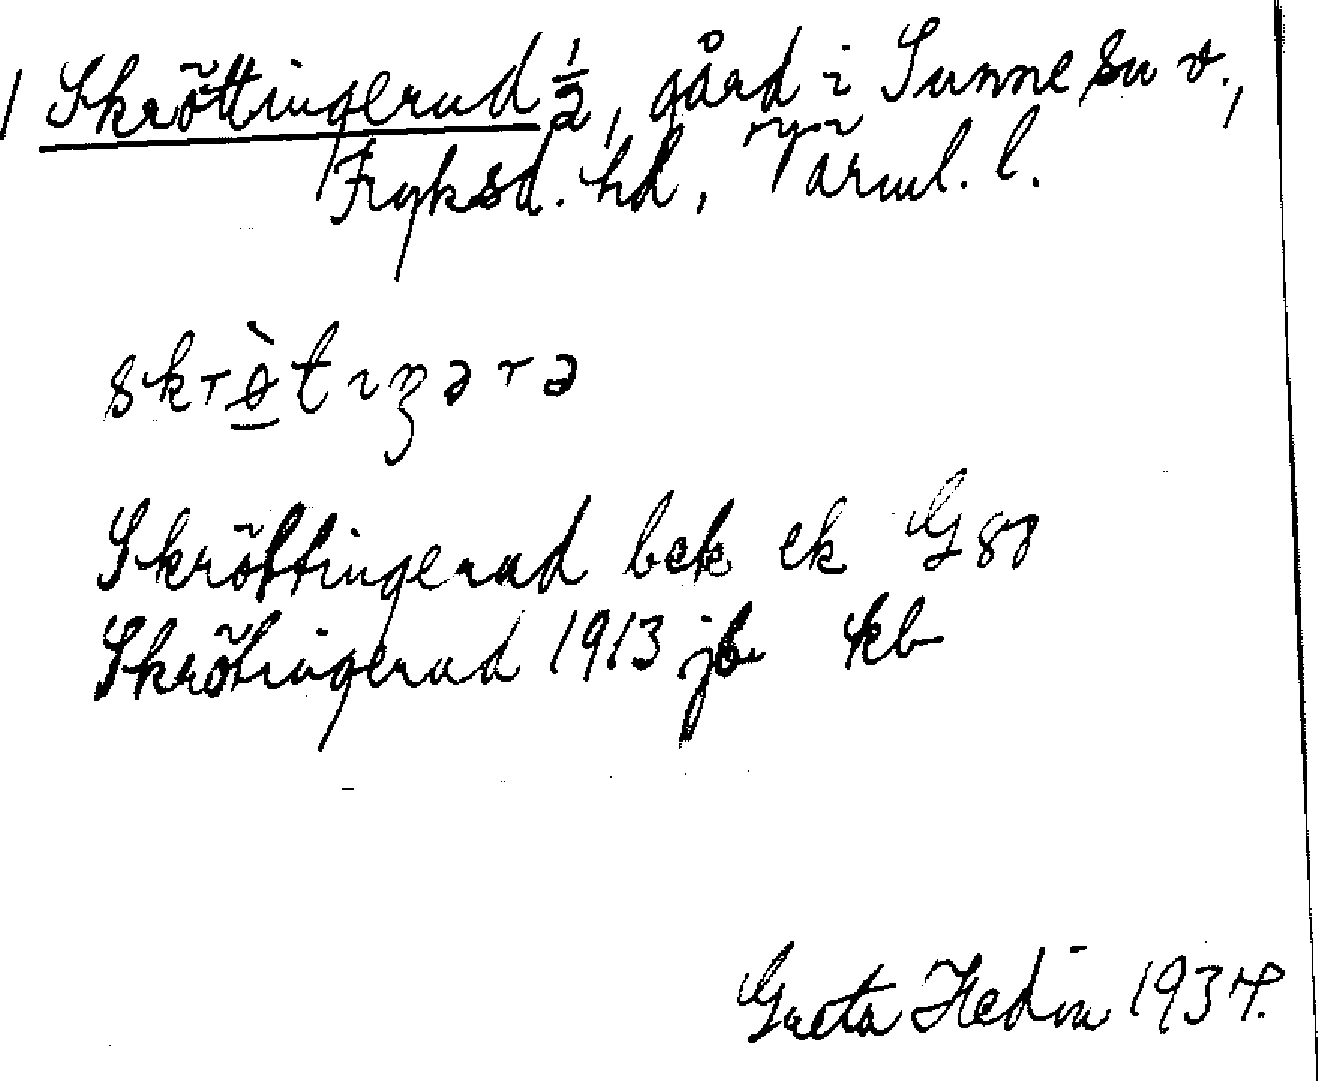 Skröttingerud 1/2, gård i Sunne sn v.,
Fryksd. hd, Värml. l.
skrò̱tıŋərə
Skröttingerud bek ek G 80
Skrötingerud 1913 jb kb
Greta Hedin 1934.